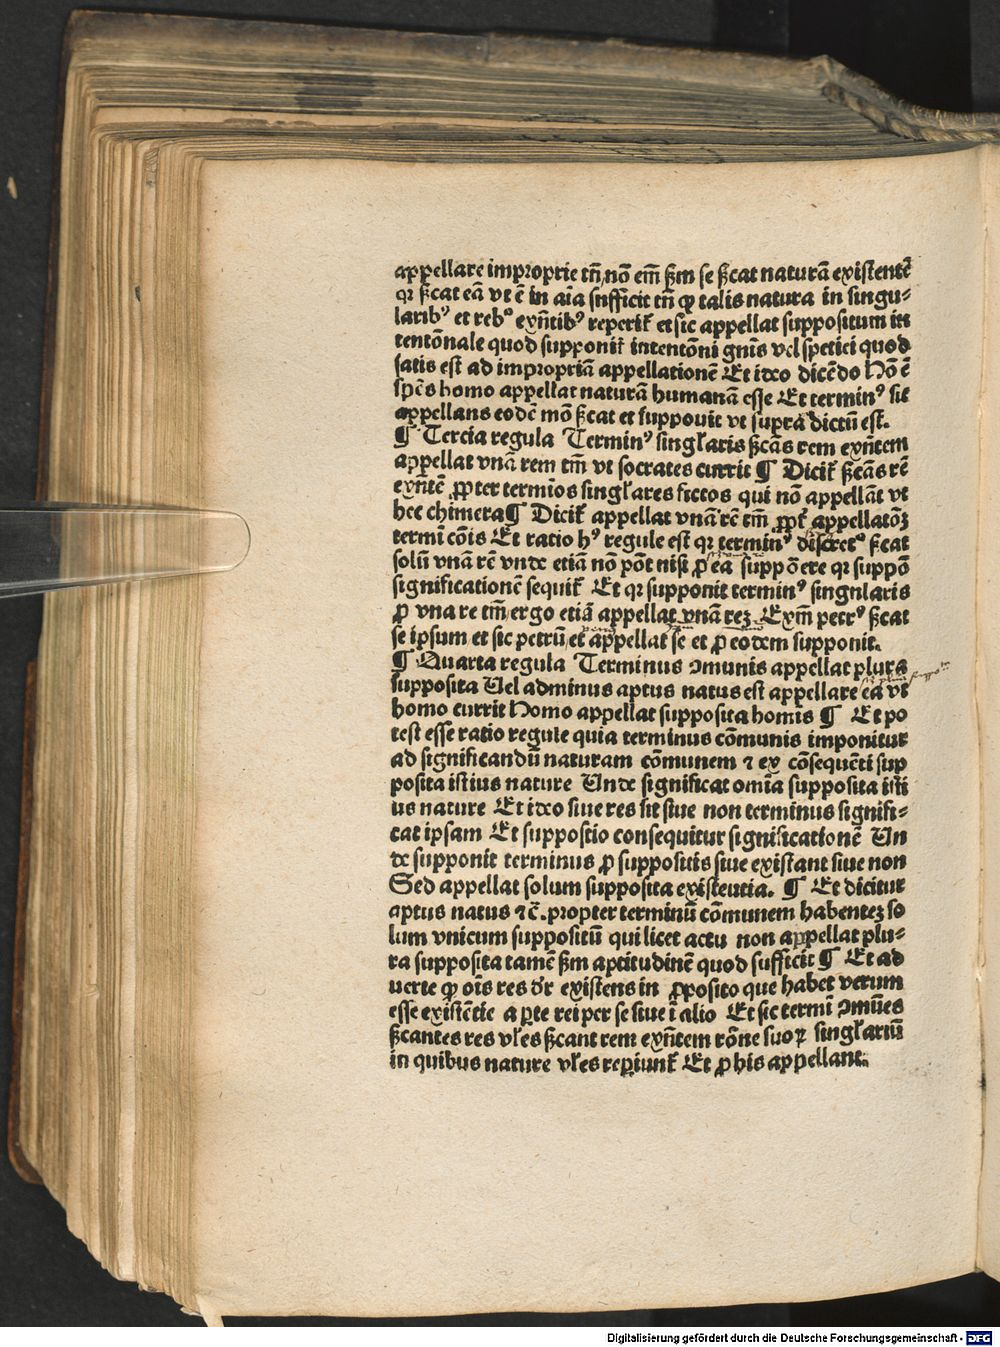 appellare improprie tñ, nõ em̃ ẜm se ẜcat naturã existentẽ
qꝛ ẜcat eã vt ẽ in aĩa snfficit tñ ꝙ talis natura in singu⸗
laribꝰ et rebꝰ exñtibꝰ reperiť et sic appellat suppositum in
tentõnale quod supponiť intentõni gnĩs vel spetici quod
satis est ad impropriã appellationẽ Et ideo dicẽdo Hõ ẽ
spẽs homo appellat naturã humanã esse Et terminꝰ sit
appellans eodẽ mõ ẜcat et suppouit vt supra dictũ est.
¶ Tercia regula Terminꝰ singľaris ẜcãs rem exñtem
appellat vnã rem tm̃ vt socrates currit ¶ Diciť ẜcãs rẽ
exñtẽ ꝓpter termĩos singľares fictos qui nõ appellãt vt
hec chimera¶ Diciť appellat vnã rẽ tm̃ ꝓpť appellatõꝫ
termĩ cõis Et ratio hꝰ regule est qꝛ terminꝰ discretꝰ ẜcat
solũ vnã rẽ vnde etiã nõ põt nisi ꝓ ea suppõere qꝛ suppõ
significationẽ sequiť Et qꝛ supponit terminꝰ singnlaris
ꝓ vna re tm̃ ergo etiã appellat vnã reꝫ Exm̃ petrꝰ ẜcat
se ipsum et sic petrũ et appellat se et ꝓ eodem supponit.
¶ Quarta regula Terminus ꝯmunis appellat plura
supposita Uel adminus aptus natus est appellare ea vt
homo currit Homo appellat supposita homĩs ¶ Et po
test esse ratio regule quia terminus cõmunis imponitur
ad significandũ naturam cõmunem ⁊ ex cõsequẽti sup
posita istius nature Unde significat omĩa supposita isti
us nature Et ideo siue res sit siue non terminus signifi⸗
cat ipsam Et suppositio consequitur significationẽ Un
de supponit terminus ꝓ suppositis siue existant siue non
Sed appellat solum supposita existeutia. ¶ Et dicitur
aptus natus ⁊c̃. propter terminũ cõmunem habenteꝫ so
lum vnicum suppositũ qui licet actu non appellat plu⸗
ra supposita tamẽ ẜm aptitudinẽ quod sufficit ¶ Et ad
uerte ꝙ oĩs res dr̃ existens in ꝓposito que habet verum
esse existẽtie a ꝑte rei per se siue ĩ alio Et sic termĩ ꝯmũes
ẜcantes res vľes ẜcant rem exñtem rõne suoꝝ singľariũ
in quibus nature vľes reꝑiunť Et ꝓ his appellant.
Digitalisierung gefördert durch die Deutsche Forschungsgemeinschaft - DFG